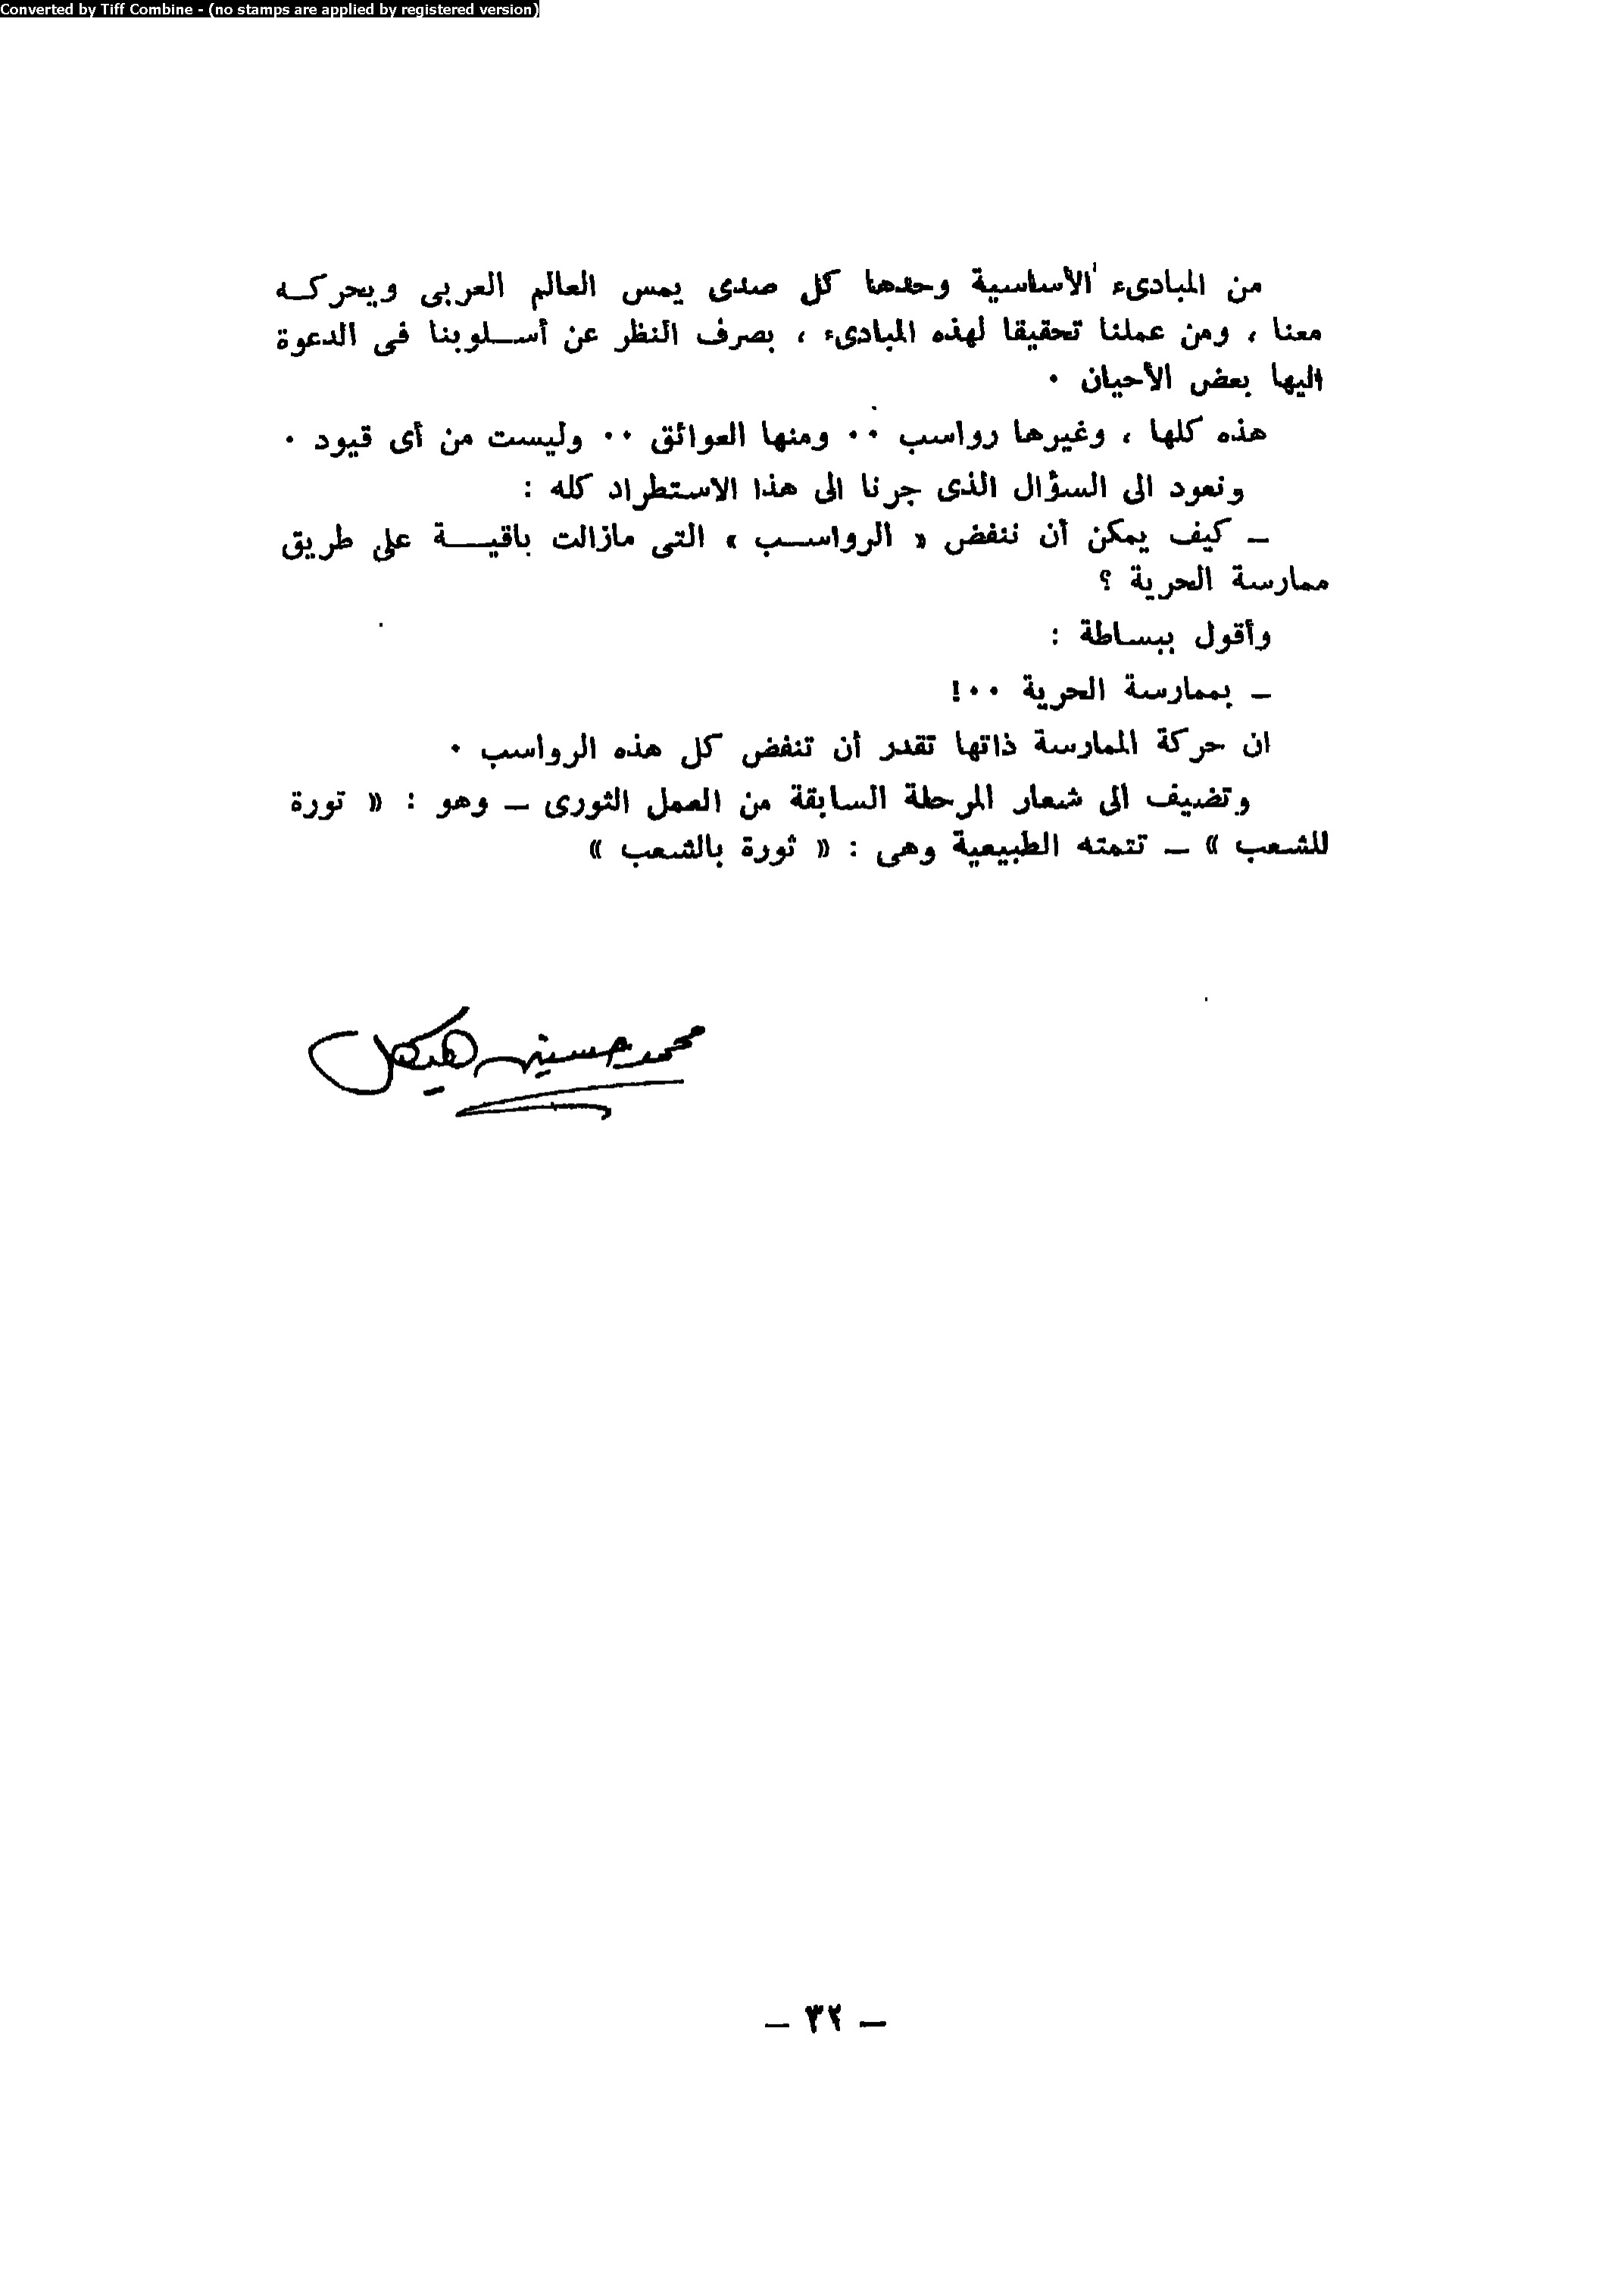 Converted by Tiff Combine - (no stamps are applied by registered version)
من المبادىء الأساسية وحدها كل صدى يمس العالم العربى ويحركه
معنا ، ومن عملنا تحقيقا لهذه المبادىء ، بصرف النظر عن أسلوبنا فى الدعوة
اليها بعض الأحيان ٠
هذه كلها ، وغيرها رواسب ٠٠ ومنها العوائق ٠٠ وليست من أى قيود ٠
ونعود الى السؤال الذى جرنا الى هذا الاستطراد كله :
ـ كيف يمكن أن ننفض « الرواسب » التى مازالت باقية على طريق
ممارسة الحرية ؟
وأقول ببساطة :
ـ بممارسة الحرية ٠٠!
ان حركة الممارسة ذاتها تقدر أن تنفض كل هذه الرواسب ٠
وتضيف الى شعار المرحلة السابقة من العمل الثورى ـ وهو : « ثورة
للشعب » ـ تتمته الطبيعية وهى : « ثورة بالشعب »
محمد حسنين هيكل
ـ ٣٢ ـ